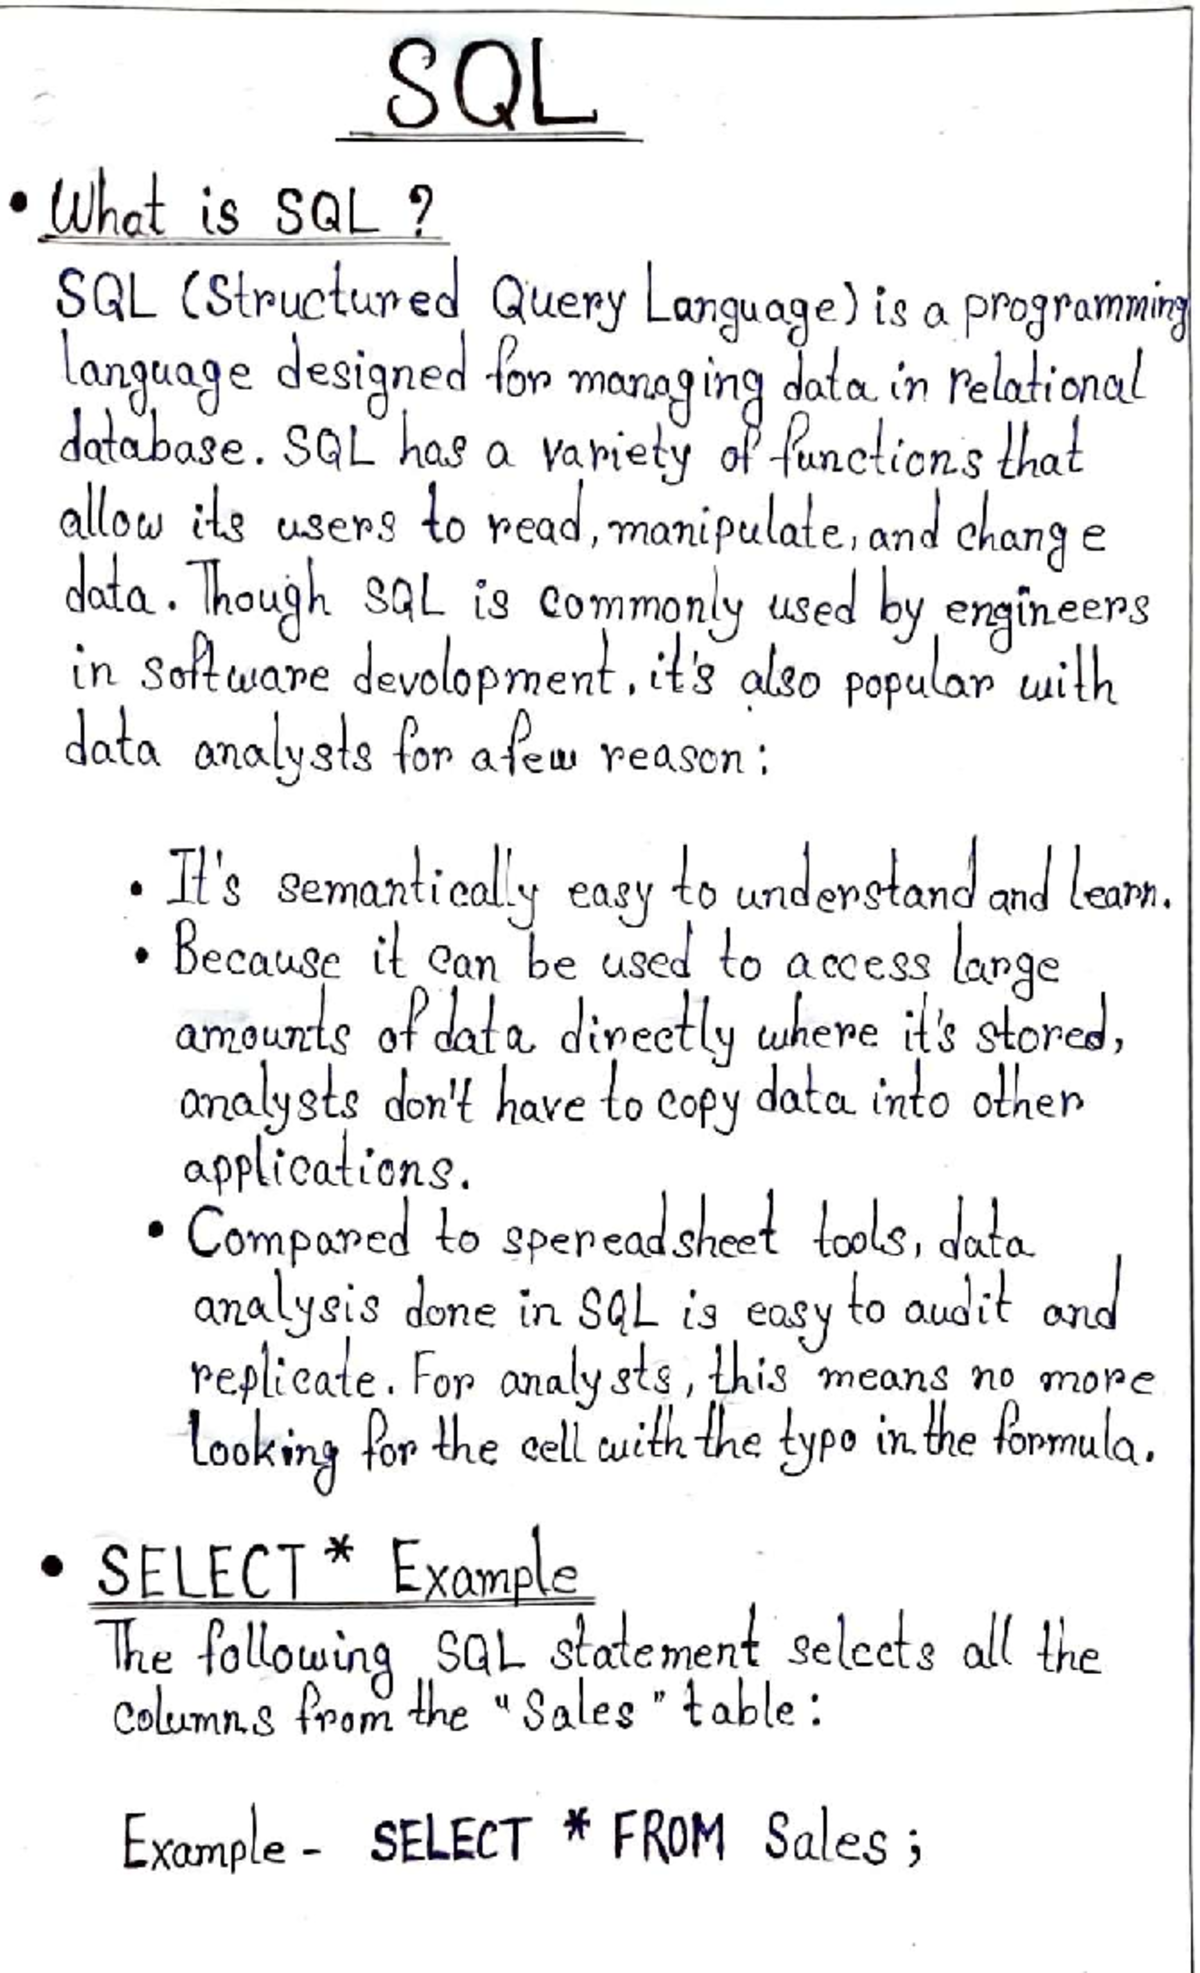 SQL
• What is SQL ?
SQL (Structured Query Language) is a programming
language designed for managing data in relational
database. SQL has a variety of functions that
allow its users to read, manipulate, and change
data. Though SQL is commonly used by engineers
in software devolopment, it's also popular with
data analysts for a few reason:
• It's semantically easy to understand and learn.
• Because it can be used to access large
amounts of data directly where it's stored,
analysts don't have to copy data into other
applications.
• Compared to spereadsheet tools, data
analysis done in SQL is easy to audit and
replicate. For analysts, this means no more
looking for the cell with the typo in the formula.
• SELECT * Example
The following SQL statement selects all the
columns from the "Sales" table:
Example - SELECT * FROM Sales ;